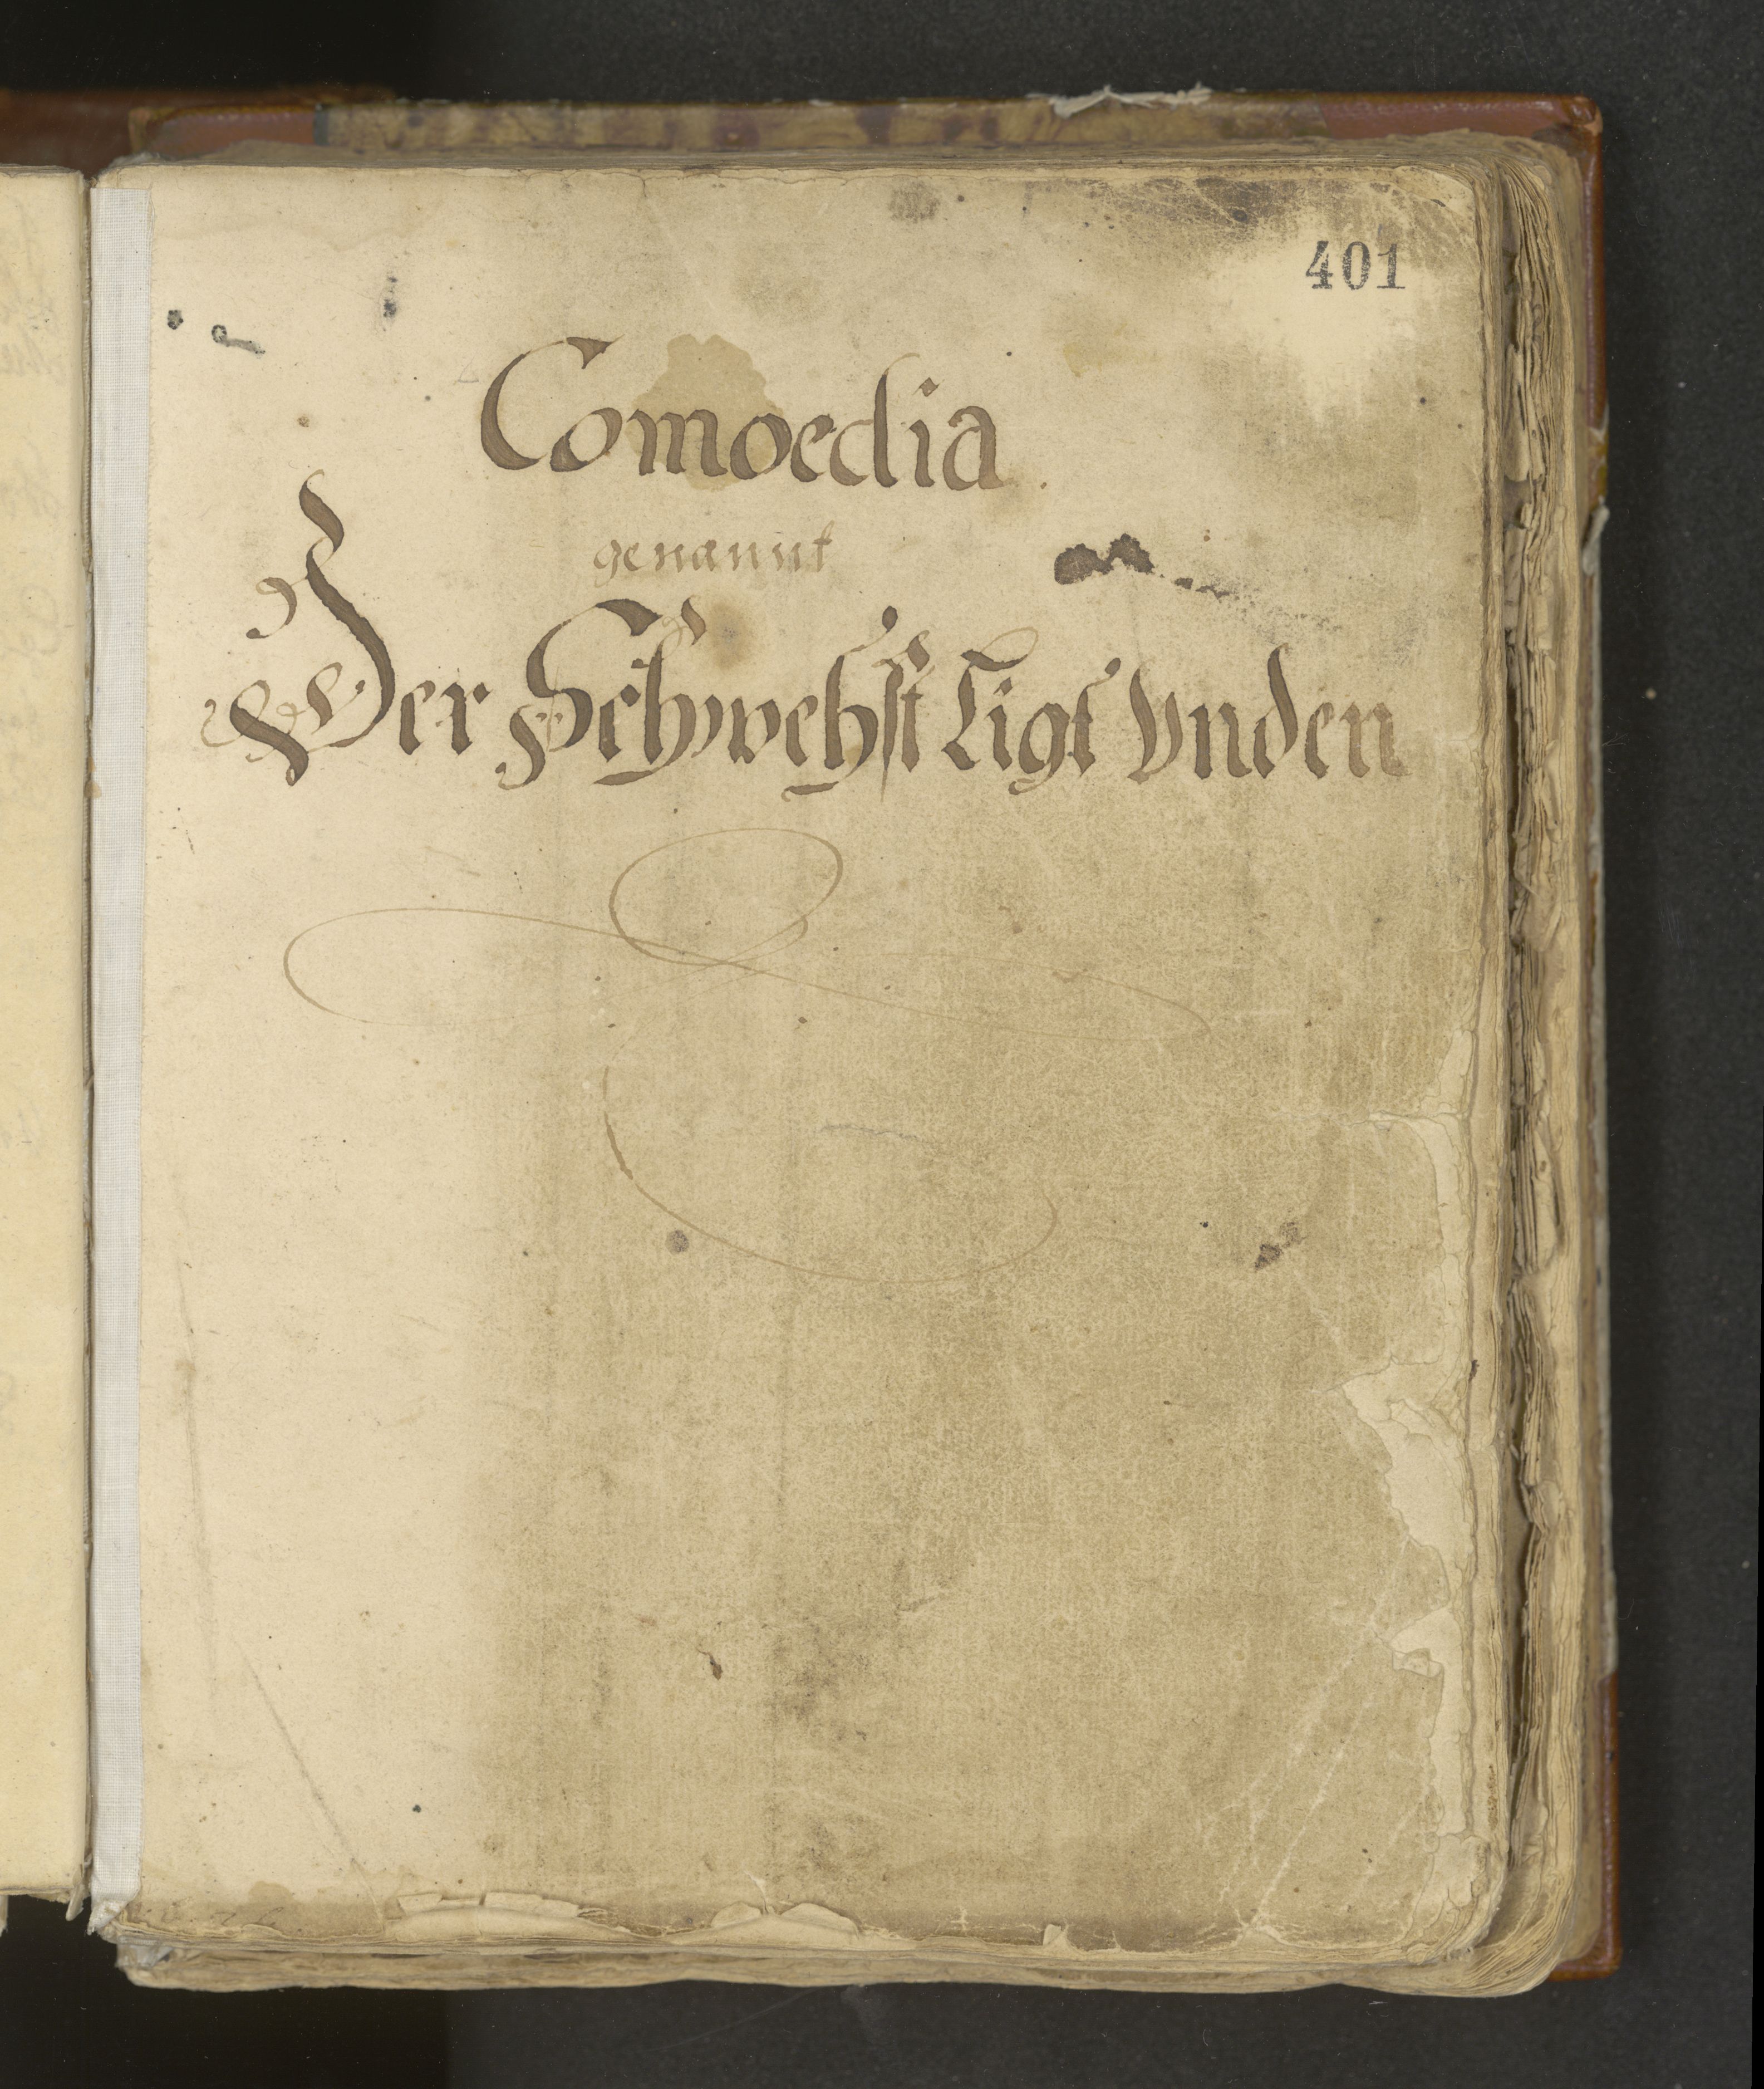 401
Comoedia
genannt
Der Schwehst Ligt Vnden